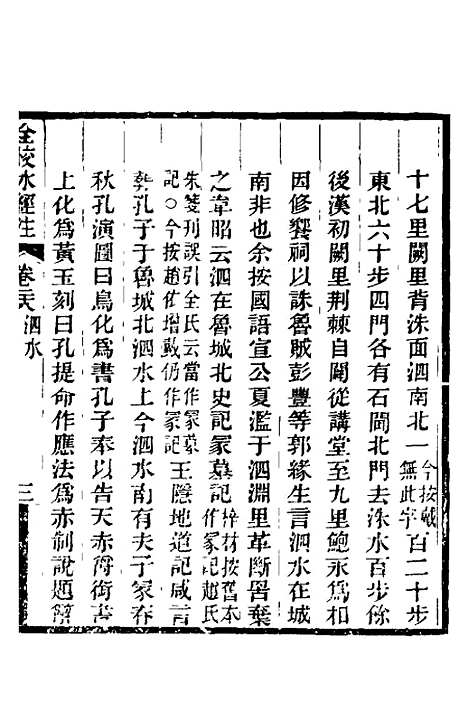 十七里闕里背洙面泗南北一今按戴無此字百二十步
東北六十步四門各有石閫北門去洙水百步餘
後漢初闕里荆棘自闢從講堂至九里鮑永爲相
因修饗祠以誅魯賊彭豐等郭緣生言泗水在城
南非也余按國語宣公夏濫于泗淵里革斷罟棄
之韋昭云泗在魯城北史記冢墓記梓材按舊本作家記趙氏
朱箋刊誤引全氏云當作冢墓記〇今按趙作增戴仍作冢記王隱地道記咸言
葬孔子于魯城北泗水上今泗水南有夫子冢春
秋孔演圖曰鳥化爲書孔子奉以告天赤爵銜書
上化爲黃玉刻曰孔提命作應法爲赤制說題辭
全校水經注
卷二六 泗水
三